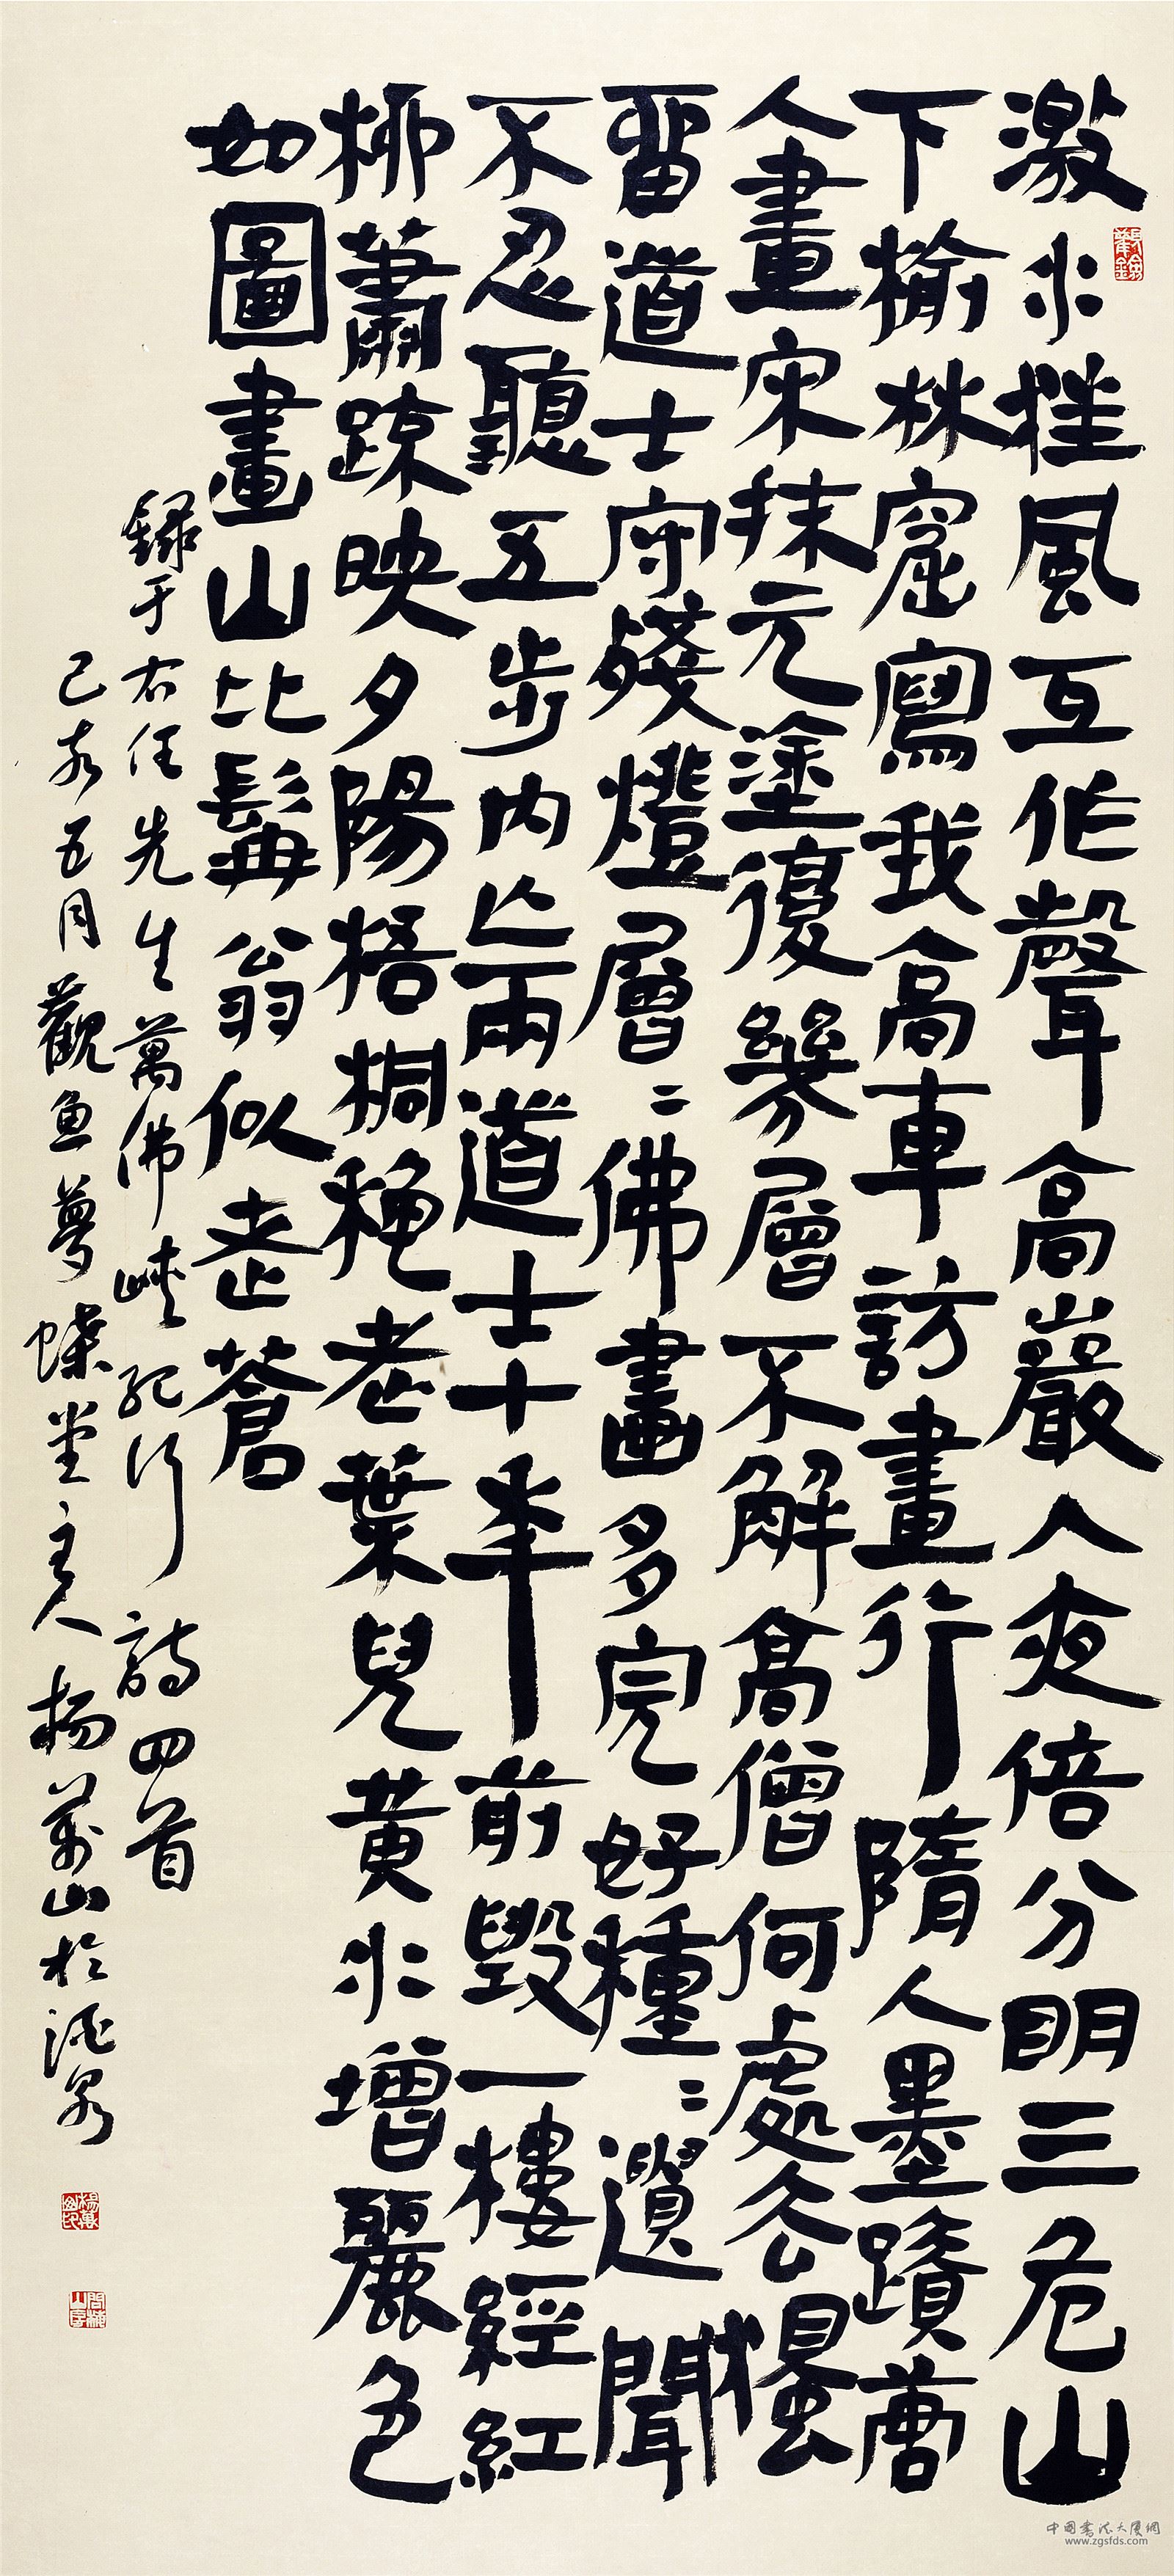 激水狂風互作聲高巖入夜倍分明三危山
下榆林窟寫我高車訪畫行隋人墨蹟唐
人畫宋抹元塗復幾層不解高僧何處去獨
留道士守殘燈層〻佛畫多完好種〻遺聞
不忍聽五步内亡兩道士十年前毀一樓經紅
柳蕭疎映夕陽梧桐穐老葉兒黄水增麗色
如圖畫山比髯翁似老蒼
録于右任先生萬佛峽紀行詩四首
己亥五月觀魚夢蝶堂主人楊萬山於酒泉
楊萬山印
中国书法大厦網
www.zgsfds.com